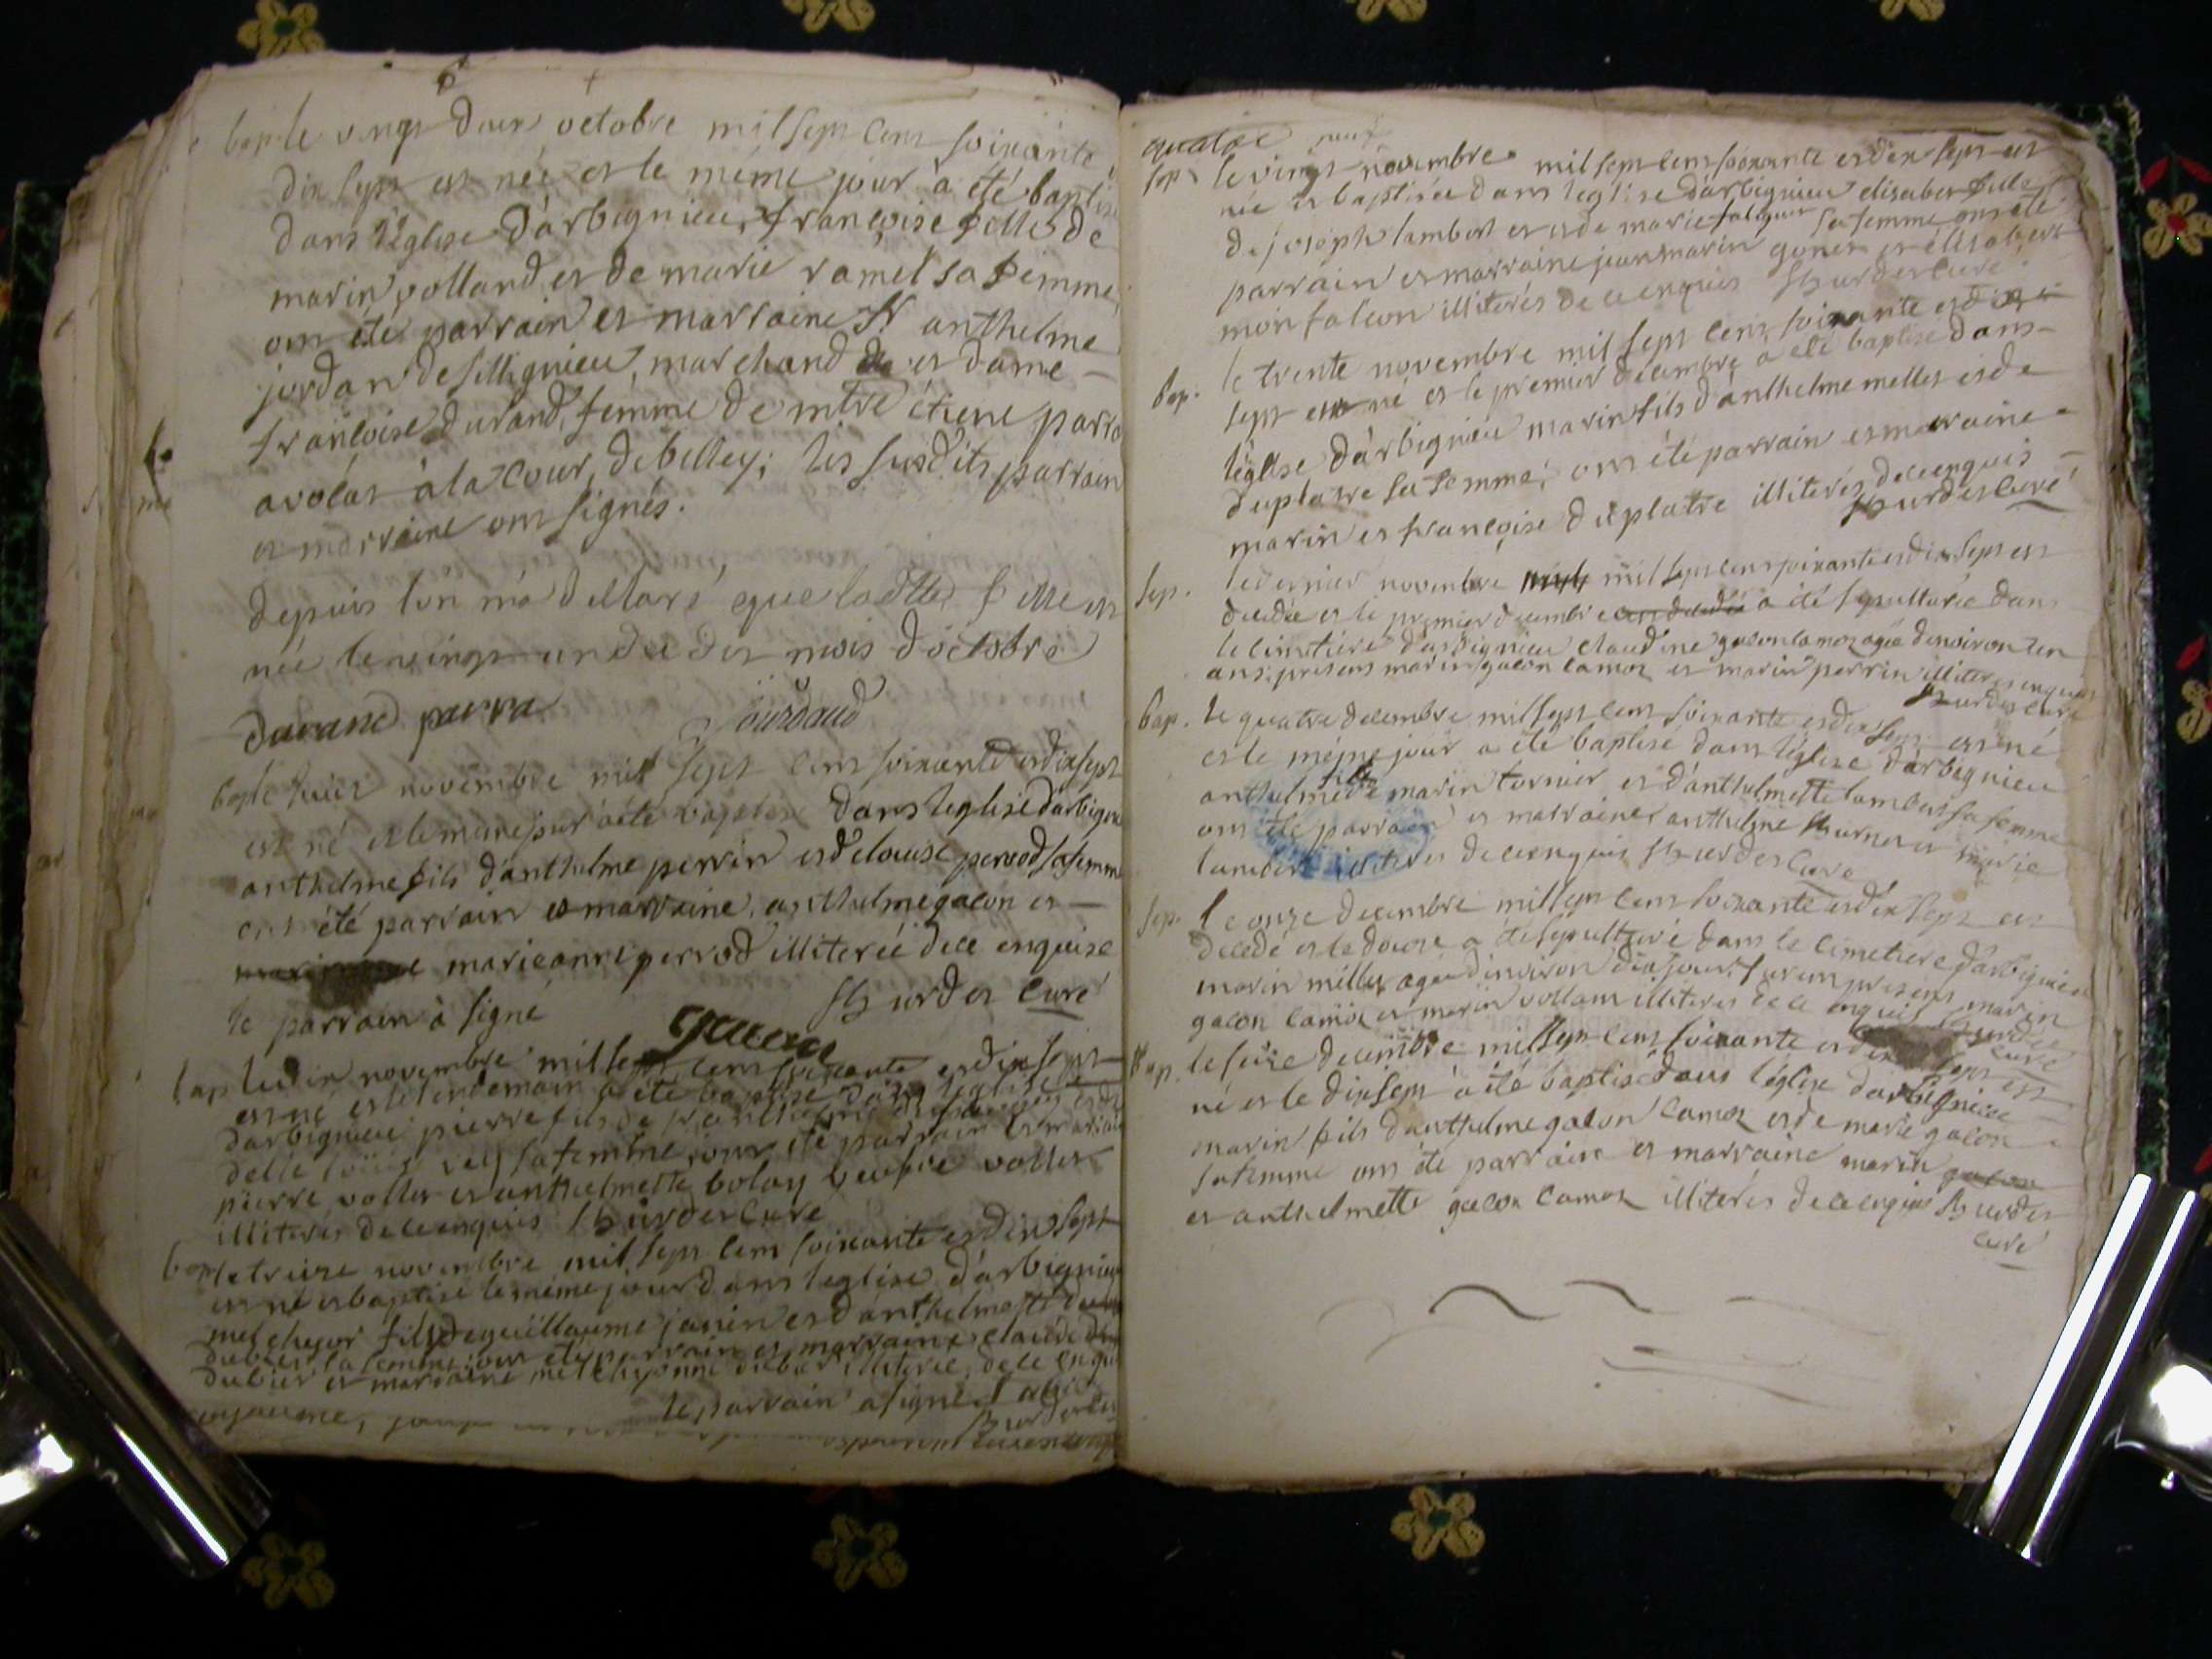 bap le vingt deux octobre mil sept cens soixante
dix sept est née et le même jour a été baptisé
dans l'église d'arbignieu, françoise fille de
marin volland et de marie ramel sa femme
ont été parrain et marraine Sr anthelme
jordan de sillignieu, marchand et dame
françoise durand, femme de mtre étiene parra
avocat à la cour de belley; les susdits parrain
et marraine ont signés.
depuis l'on m'a dellaré que la dtte fille est
née le vingt un du dit mois d'octobre
durand parra
bap le huit novembre mil sept cens soixante et dix sept
est né et le meme jour a été baptisé dans l'eglise d'arbignieu
anthelme fils d'anthelme perrin et de louise perrod sa femme
ont été parrain et marraine, anthelme gacon et
marieanne perrod illiterée de ce enquise
le parrain à signé hurdet curé
bap le dix novembre mil sept cens soixante et dix sept
est né et le lendemain a été baptisé dans l'eglise
d'arbignieu pierre fils de
sa femme, ont été parrain et marraine
pierre vollet et anthelmette bolay veufve vollet
illiterés de ce enquis hurdet curé
bap le treize novembre mil sept cens soixante et dix sept
est né et baptisé le même jour dans l'eglise d'arbignieu
melchyor fils de guillaume janin et d'anthelmette
dubier sa femme: ont été parrain et marraine claude
dubier et marraine melchyonne illiterée, de ce enquise
le parrain a signé
quatre
Sep. le vingt neuf novembre mil sept cens soixante et dix sept est
née et baptisée dans l'eglise d'arbignieu elisabet fille
de joseph lambert et de marie falquet sa femme ont été
parrain et marraine jean marin gonet et élisabert
monfalcon illiterés de ce enquis hurdet curé
bap. le trente novembre mil sept cens soixante et dix
sept est né et le premier decembre a été baptisé dans
l'église d'arbignieu marin fils d'anthelme mellet et de
duplatre sa femme; ont été parrain et marraine
marin et françoise duplatre illiterés de ce enquis
hurdet curé
Sep. le dernier novembre mil sept cens soixante et dix sept est
decedée et le premier decembre a été sepulturée dans
le cimetiere d'arbignieu claudine gacon camoz agée d'environ un
ans: presens marin gacon camoz et marin perrin illiterés enquis
hurdet curé
bap. le quatre decembre mil sept cens soixante et dix sept est né
et le même jour a été baptisé dans l'église d'arbignieu
anthelme fils de marin turnier et d'anthelmette lambert sa femme
ont été parrain et marraine anthelme turnier et marie
lambert illiterés de ce enquis hurdet curé
Sep. le onze decembre mil sept cens soixante et dix sept est
decedé et le douze a été sepulturé dans le cimetiere d'arbignieu
marin mellet agé d'environ dix jours, furent presens marin
gacon camoz et marin volland illiterés de ce enquis hurdet
curé
Bap. le seize decembre mil sept cens soixante et dix sept est
né et le dix sept a été baptisé dans l'église d'arbignieu
marin fils d'anthelme gacon camoz et de marie gacon
sa femme ont été parrain et marraine marin gacon
et anthelmette gacon camoz illiterés de ce enquis hurdet
curé